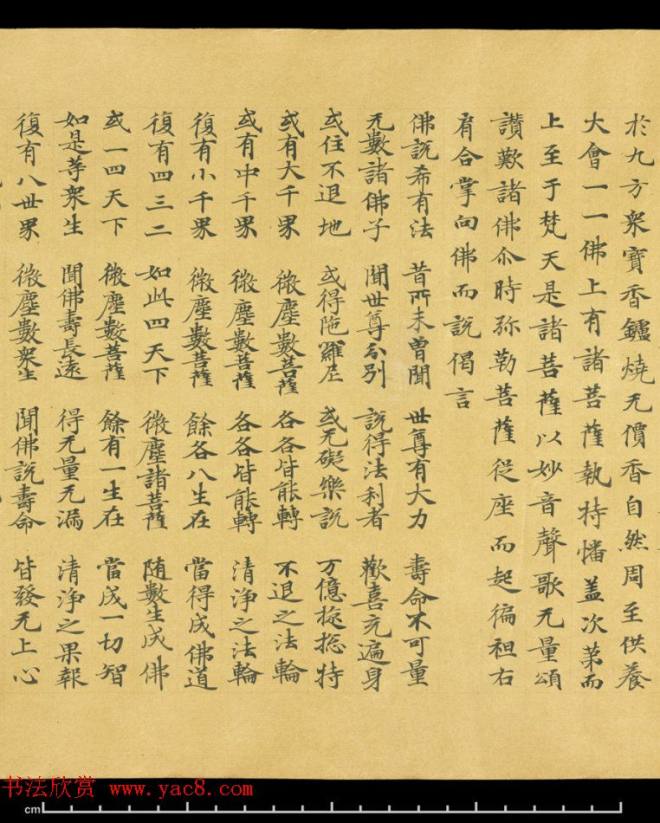 於九方衆寶香鑪燒无價香自然周至供養
大會一一佛上有諸菩薩執持幡盖次苐而
上至于梵天是諸菩薩以妙音聲歌无量頌
讃歎諸佛尒時弥勒菩薩從座而起徧袒右
肩合掌向佛而說偈言
佛說希有法 昔所未曽聞 世尊有大力 壽命不可量
无數諸佛子 聞世尊分別 說得法利者 歡喜充遍身
或住不退地 或得陁羅尼 或无礙樂說 万億捴持
或有大千界 微塵數菩薩 各各皆能轉 不退之法輪
或有中千界 微塵數菩薩 各各皆能轉 清淨之法輪
復有小千界 微塵數菩薩 餘各八生在 當得成佛道
復有四三二 如此四天下 微塵諸菩薩 随數生成佛
或一四天下 微塵數菩薩 餘有一生在 當成一切智
如是等衆生 聞佛壽長遠 得无量无漏 清淨之果報
復有八世界 微塵數衆生 聞佛說壽命 皆發无上心
书法欣赏 www.yac8.com
cm